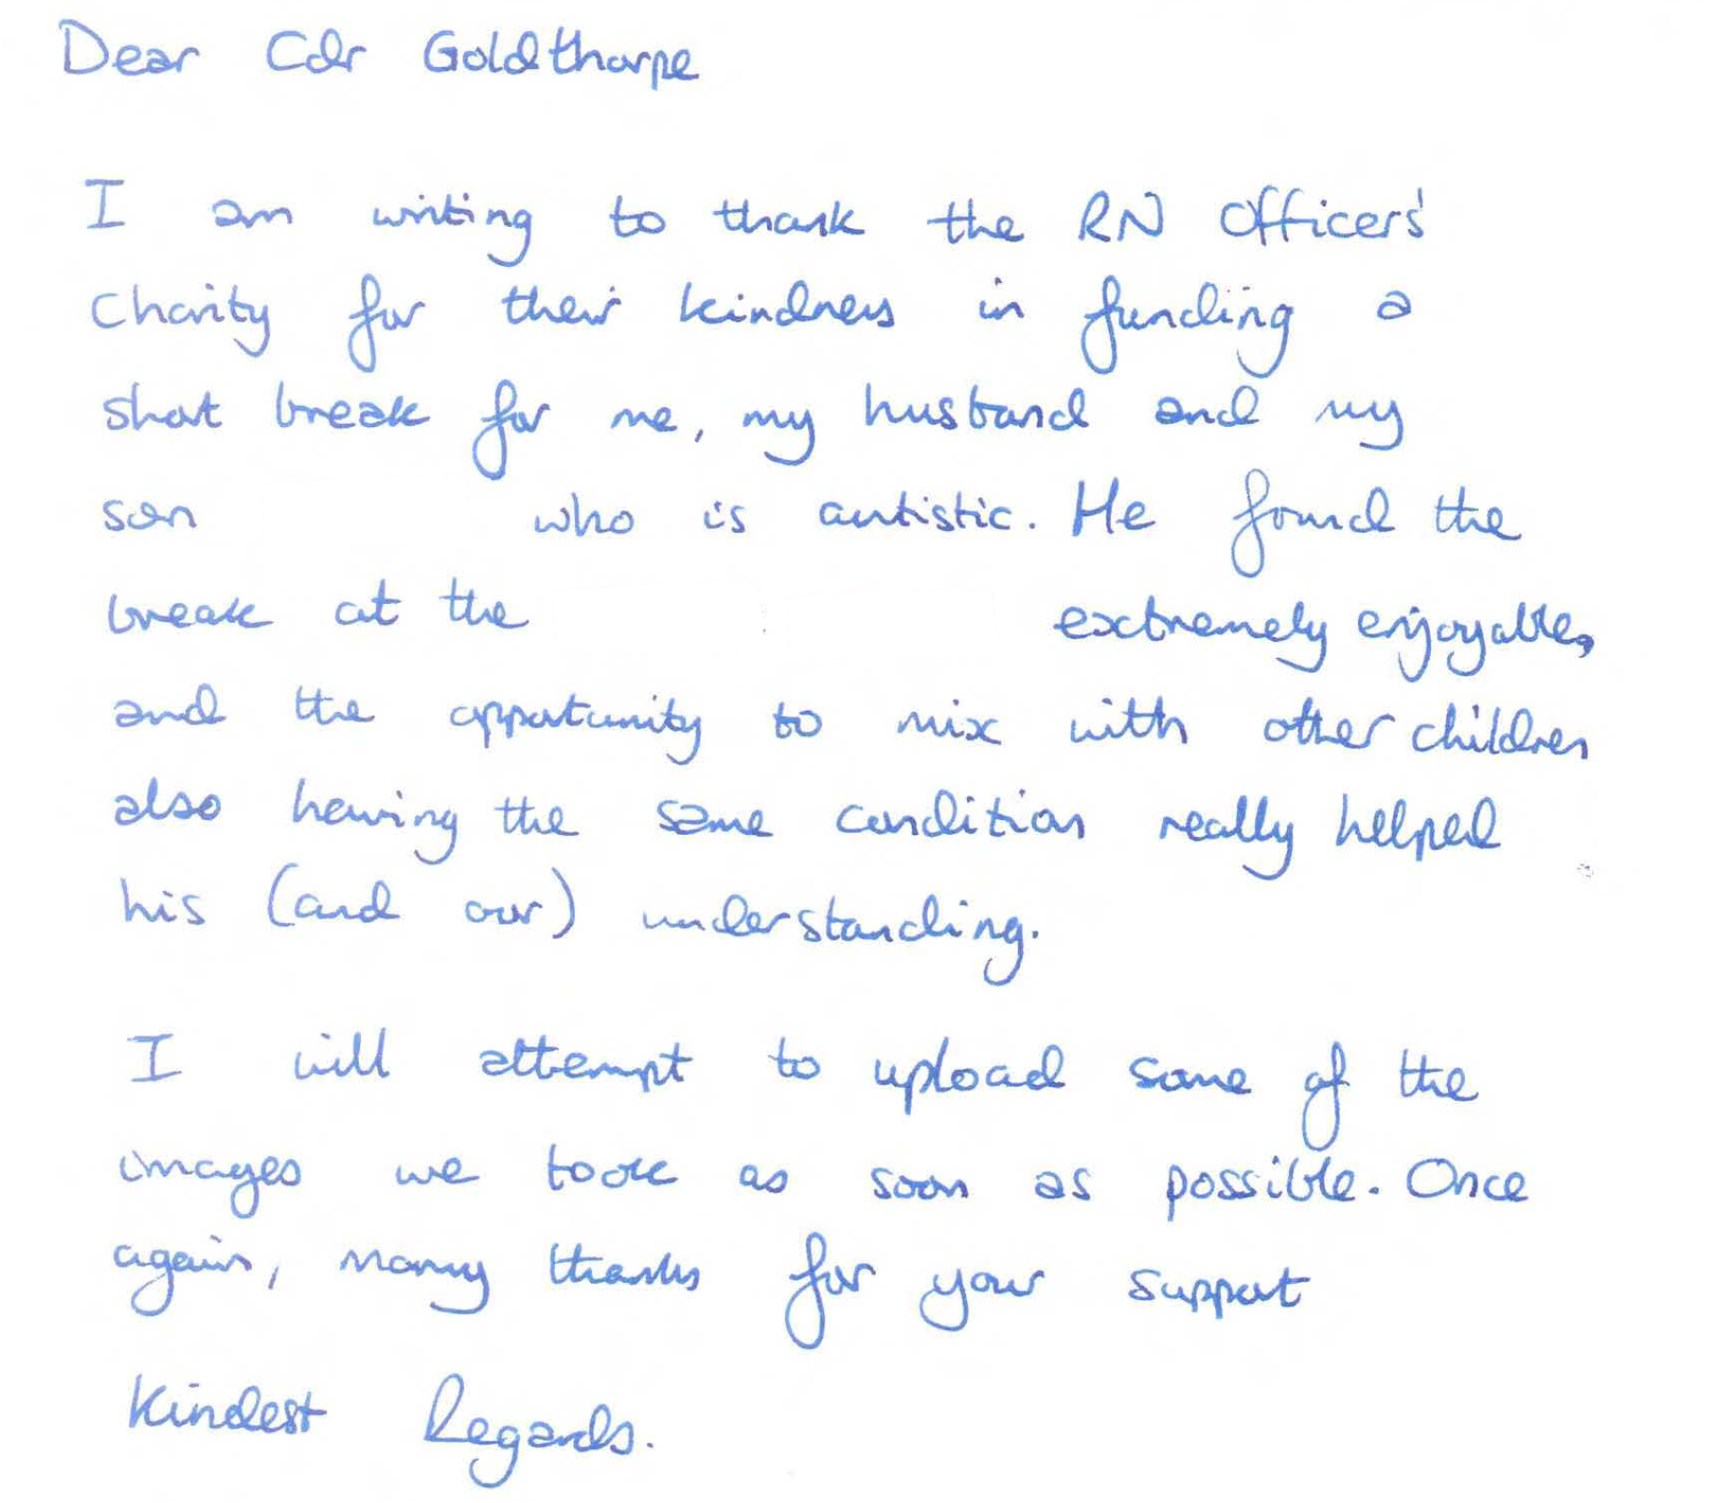 Dear Cdr Goldthorpe
I am writing to thank the RN Officers'
Charity for their kindness in funding a
short break for me, my husband and my
son who is autistic. He found the
break at the extremely enjoyable,
and the opportunity to mix with other children
also having the same condition really helped
his (and our) understanding.
I will attempt to upload some of the
images we took as soon as possible. Once
again, many thanks for your support
Kindest Regards.